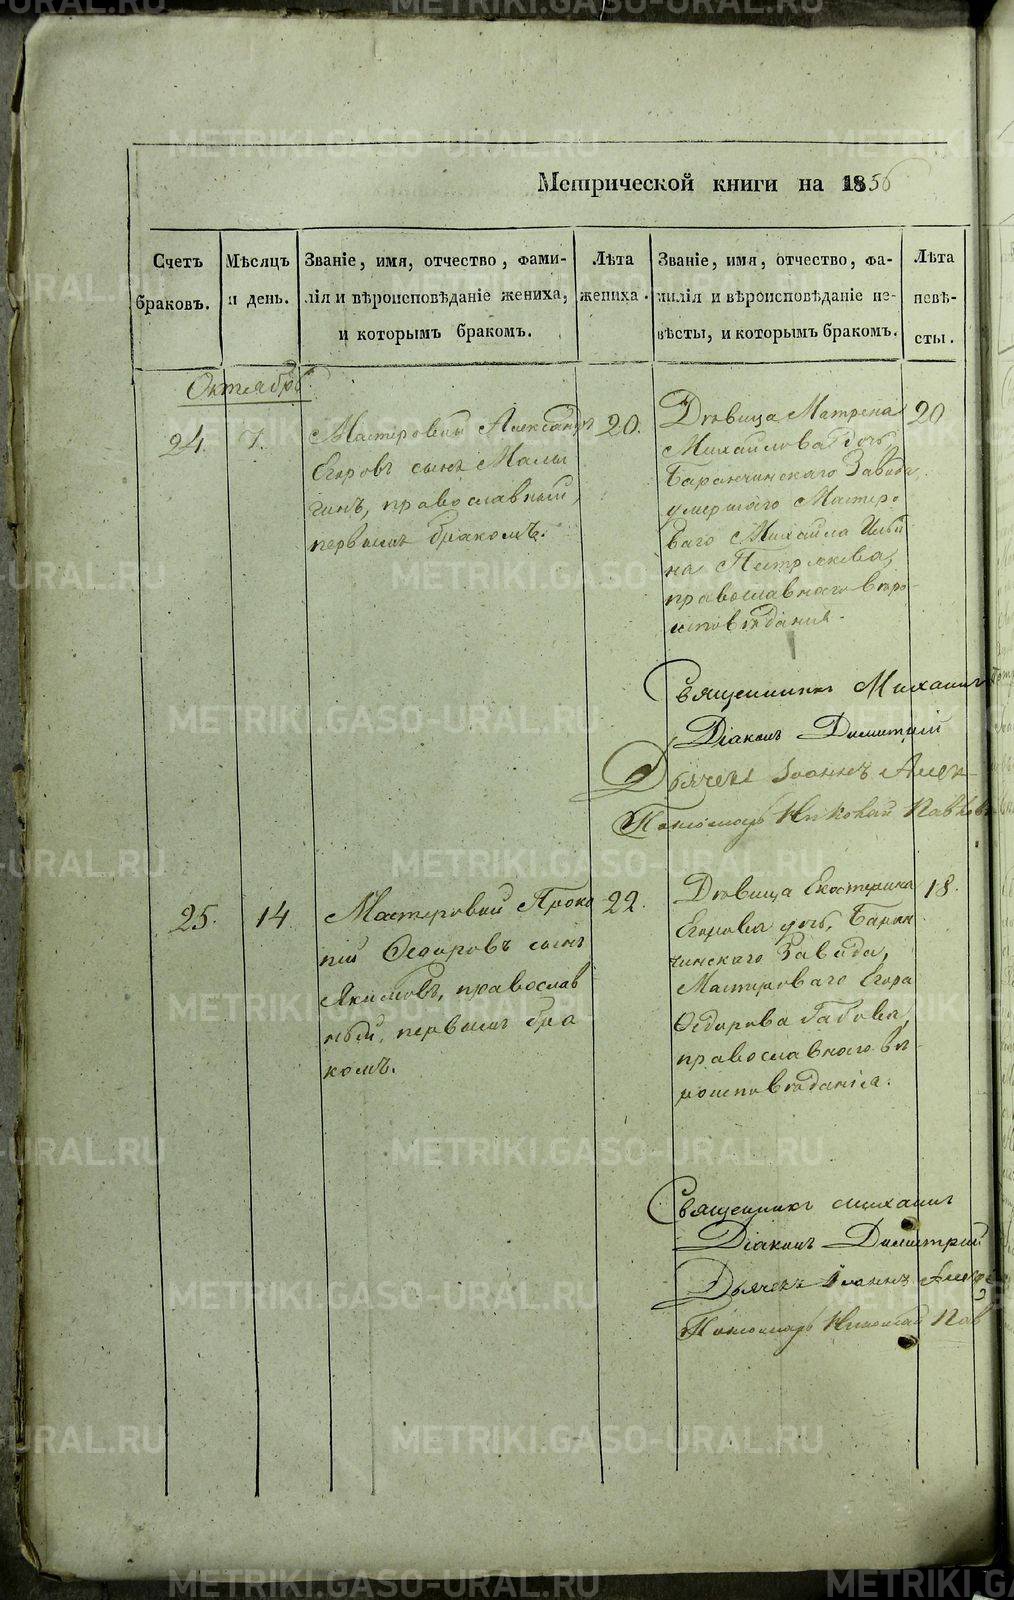 Метрической книги на 1856
Счетъ браковъ.
Мѣсяцъ и день.
Званіе, имя, отчество, фами-
лія и вѣроисповѣданіе жениха,
и которымъ бракомъ.
Лѣта жениха.
Званіе, имя, отчество, фа-
милія и вѣроисповѣданіе не-
вѣсты, и которымъ бракомъ.
Лѣта невѣ-
сты.
Октябрь.
24. 7.
Мастеровый Александръ
Егоровъ сынъ Малы
гинъ, православный,
первымъ бракомъ.
20.
Дѣвица Матрена
Михайлова дочь,
Баранчинскаго Завода,
умершаго Мастеро
ваго Михайла Ильи
на Петрякова,
православнаго вѣро-
исповѣданія.
20
Священникъ Михаилъ
Діаконъ Димитрій
Дьячекъ Іоаннъ Алек-
Пономарь Николай Павлов
25. 14.
Мастеровый Проко
пій Ѳедоровъ сынъ
Якимовъ, православ
ный, первымъ бра
комъ.
22.
Дѣвица Екатерина
Егорова дочь, Баран
чинскаго Завода,
Мастероваго Егора
Ѳедорова Габова,
православнаго вѣ-
роисповѣданія.
18.
Священникъ Михаилъ
Діаконъ Димитрій
Дьячекъ Іоаннъ
Пономарь Николай Пав
METRIKI.GASO-URAL.RU